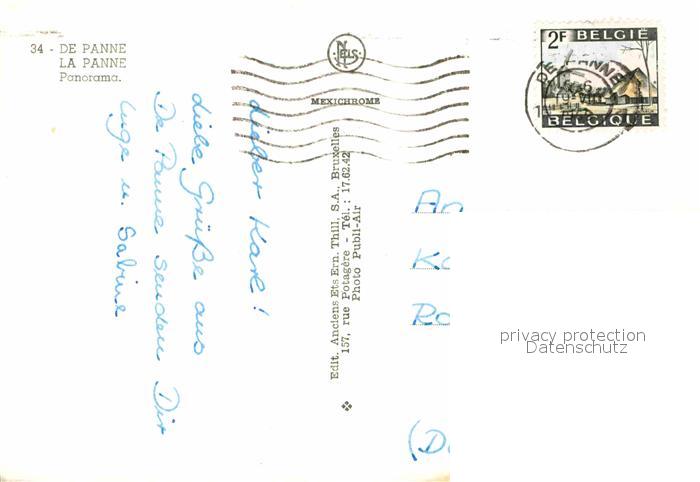 34 - DE PANNE
LA PANNE
Panorama.
NELS
MEXICHROME
2F BELGIË
BELGIQUE
DE PANNE
Lieber Karl!
Liebe Grüße aus
De Panne senden Dir
Inge u. Sabine
Edit. Anciens Ets Ern. Thill, S.A., Bruxelles
157, rue Potagère - Tél.: 17.62.42
Photo Publi-Air
An
Ka
Ro
(D
privacy protection
Datenschutz